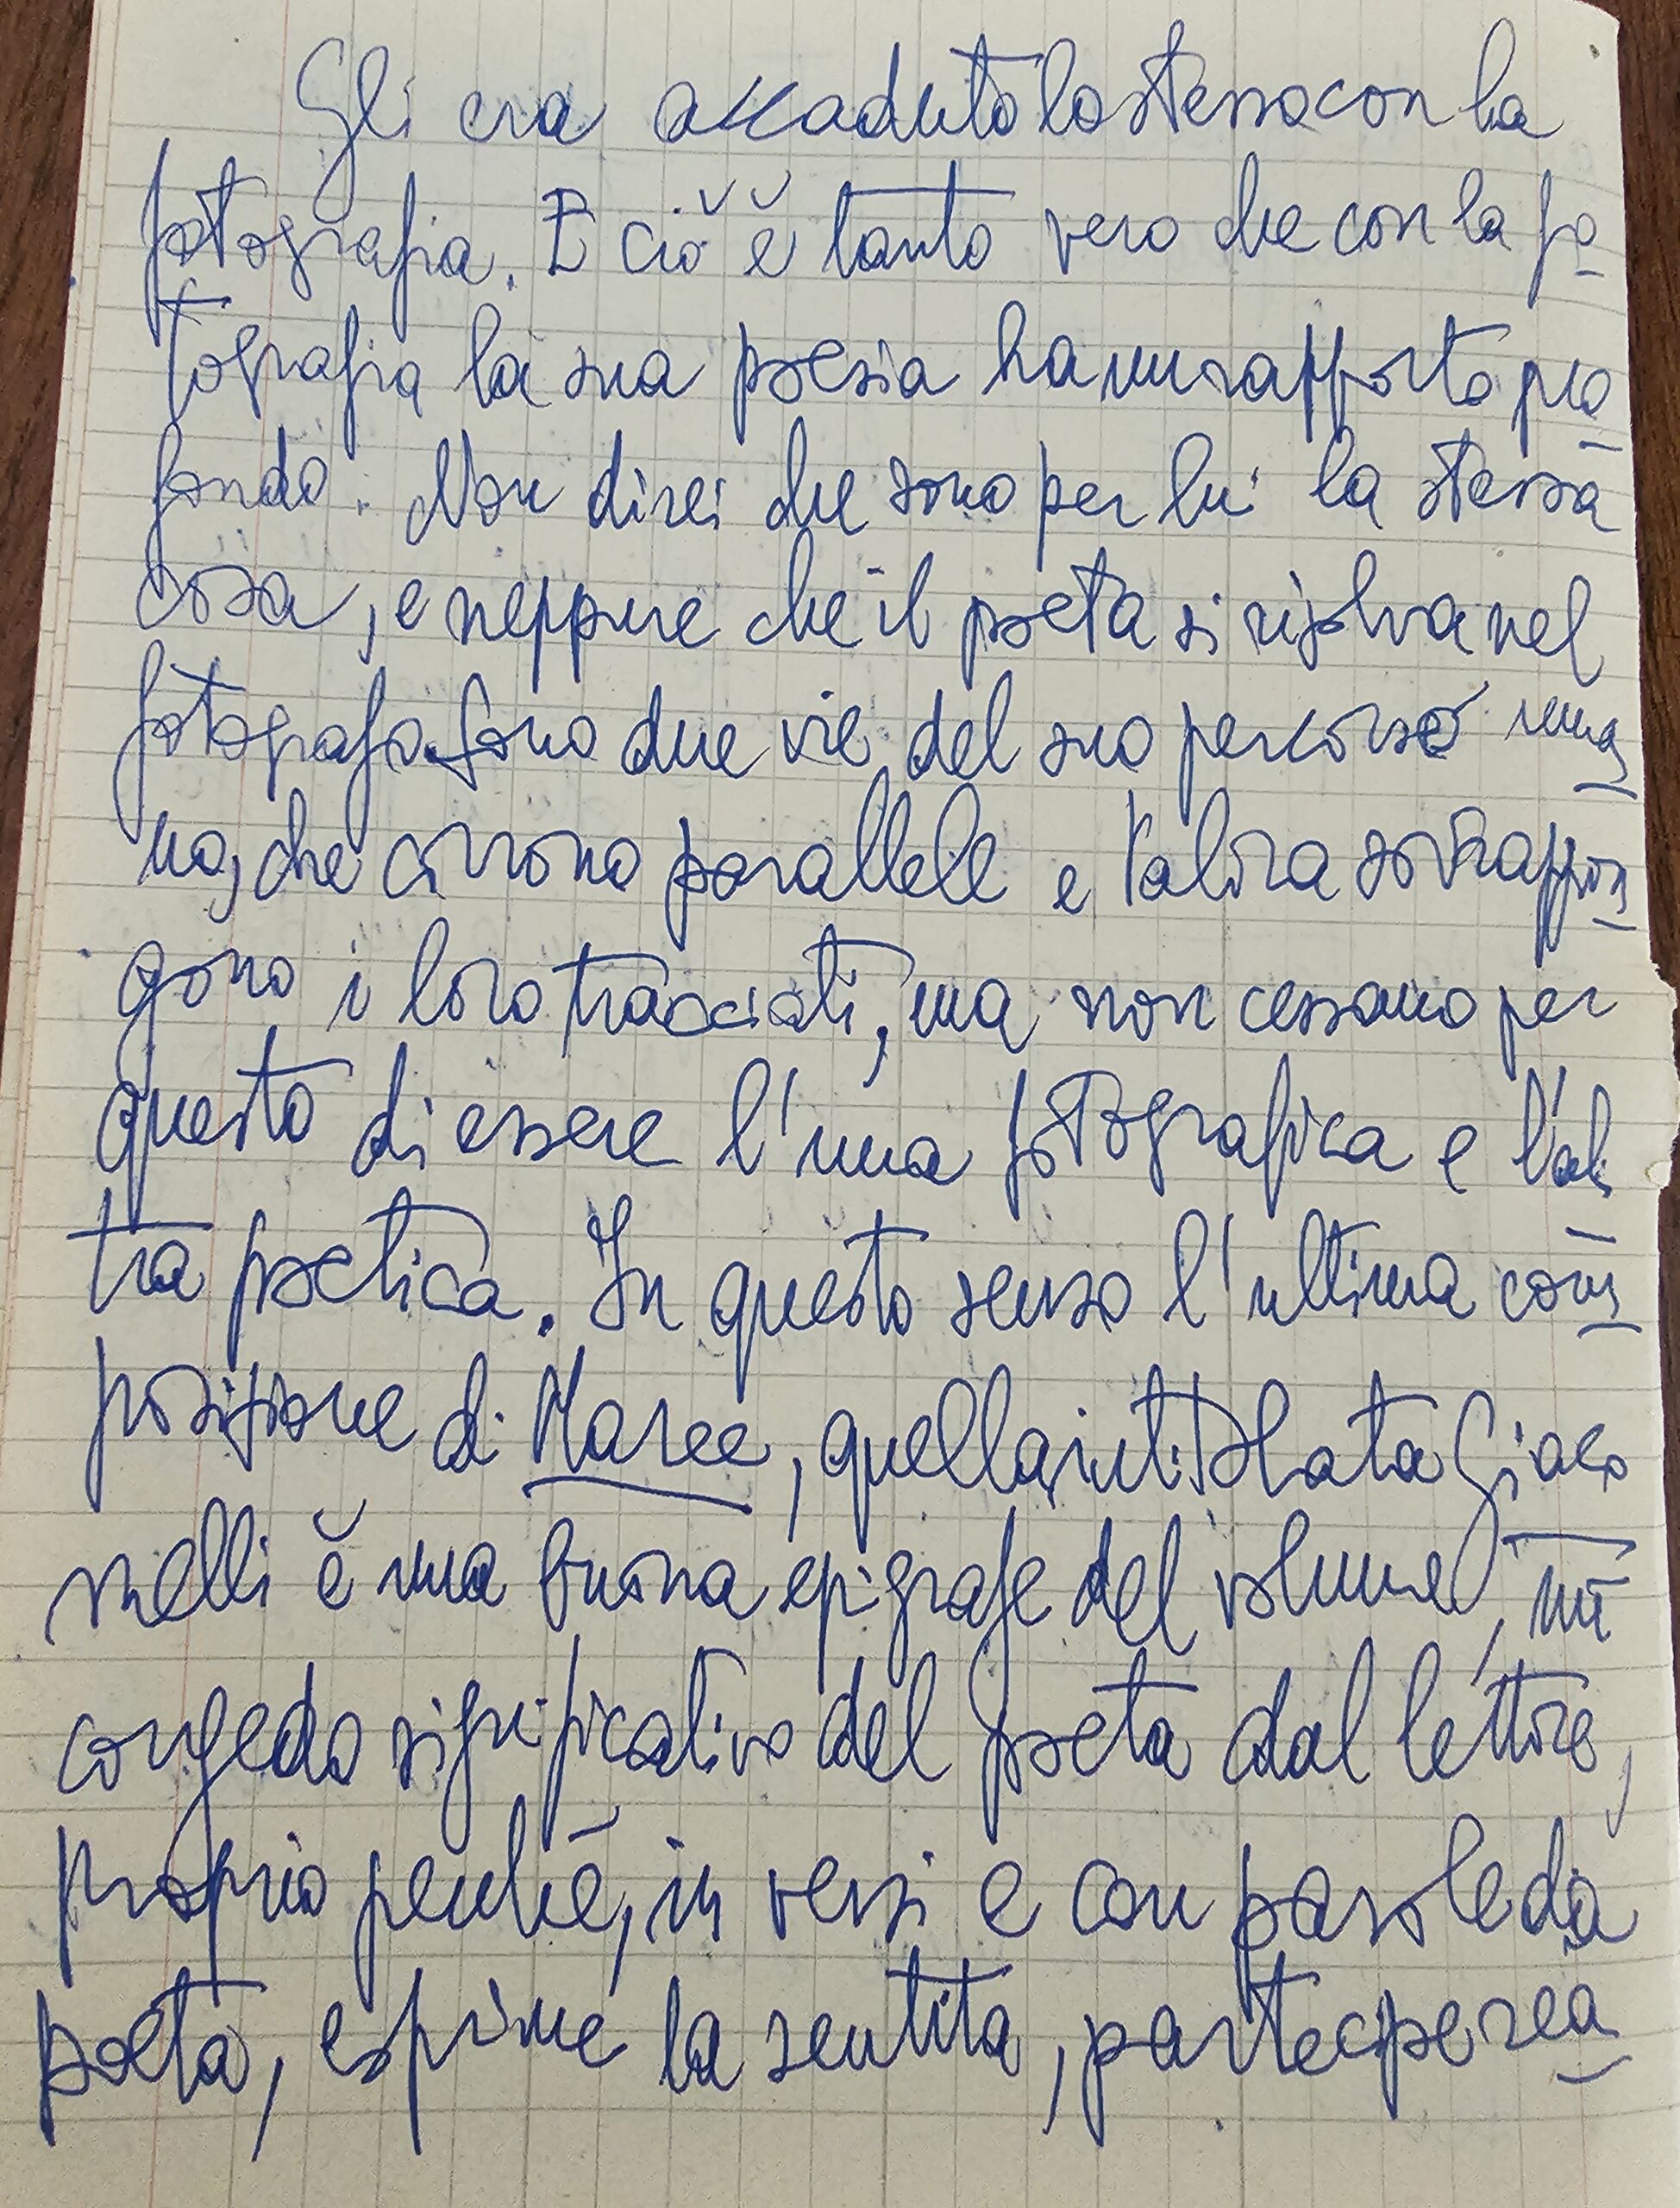 Gli era accaduto lo stesso con la
fotografia. E ciò è tanto vero che con la fo_
tografia la sua poesia ha un rapporto pro_
fondo. Non direi che sono per lui la stessa
cosa, e neppure che il poeta si risolva nel
fotografo. Sono due vie del suo percorso uma_
no, che corrono parallele e talora sovrappon_
gono i loro tracciati, ma non cessano per
questo di essere l'una fotografica e l'al_
tra poetica. In questo senso l'ultima com_
posizione di Maree, quella intitolata Giaco
melli è una buona epigrafe del volume, un
congedo significativo del poeta dal lettore,
proprio perché, in versi e con parole da
poeta, esprime la sentita, partecipe rea_